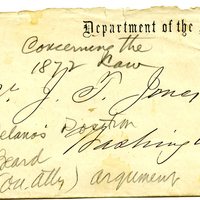 Department of the
Concerning the
1872 Law
J. T. Jones
Delano's Position
Washington
Beard
Atty) argument